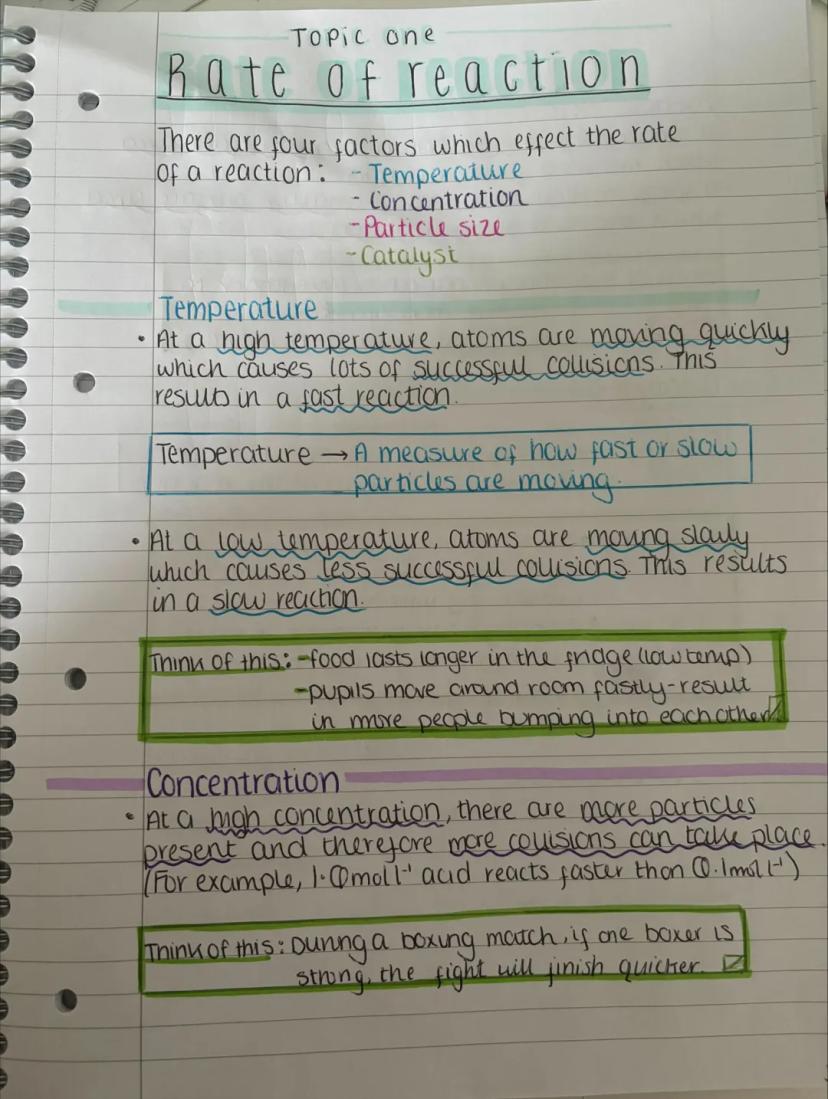 Topic one
Rate of reaction
There are four factors which effect the rate
of a reaction: - Temperature
- Concentration
- Particle size
- Catalyst
Temperature
• At a high temperature, atoms are moving quickly
which causes lots of successful collisions. This
results in a fast reaction.
Temperature → A measure of how fast or slow
particles are moving.
• At a low temperature, atoms are moving slowly
which causes less successful collisions. This results
in a slow reaction.
Think of this: - food lasts longer in the fridge (low temp)
- pupils move around room fastly - result
in more people bumping into each other
Concentration
• At a high concentration, there are more particles
present and therefore more collisions can take place.
(For example, 1.0 mol l⁻¹ acid reacts faster than 0.1 mol l⁻¹)
Think of this: During a boxing match, if one boxer is
strong, the fight will finish quicker.